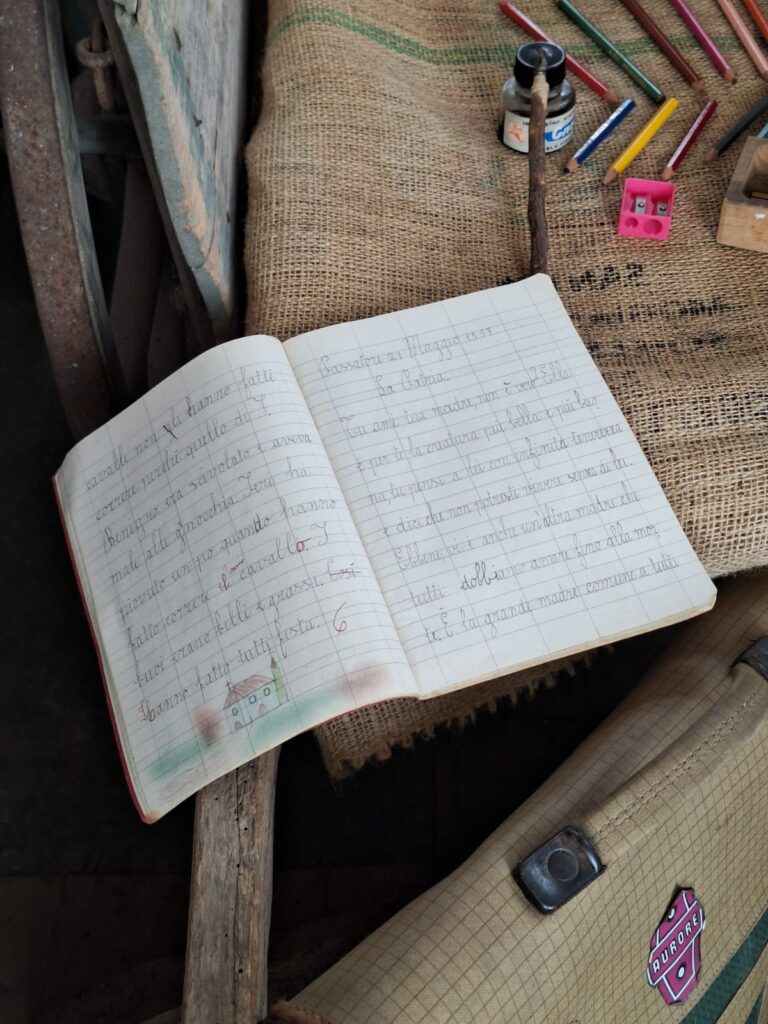 cavalli non gli hanno fatti
correre perché quello di I.
Benigno era scivolato e aveva
male alle ginocchia. Ieri ha
piovuto un po' quando hanno
fatto correre il cavallo. I
buoi erano belli e grassi. Così
hanno fatto tutti festa. 6
21 Maggio 1957
La Patria.
Tu ami tua madre, non è vero? Ella
è per te la creatura più bella e più buo
na, tu pensi a lei con infinita tenerezza
e dici che non potresti vivere senza di lei.
Ebbene, vi è anche un'altra madre che
tutti dobbiamo amare fino alla mor
te. È la grande madre comune a tutti
AURORE